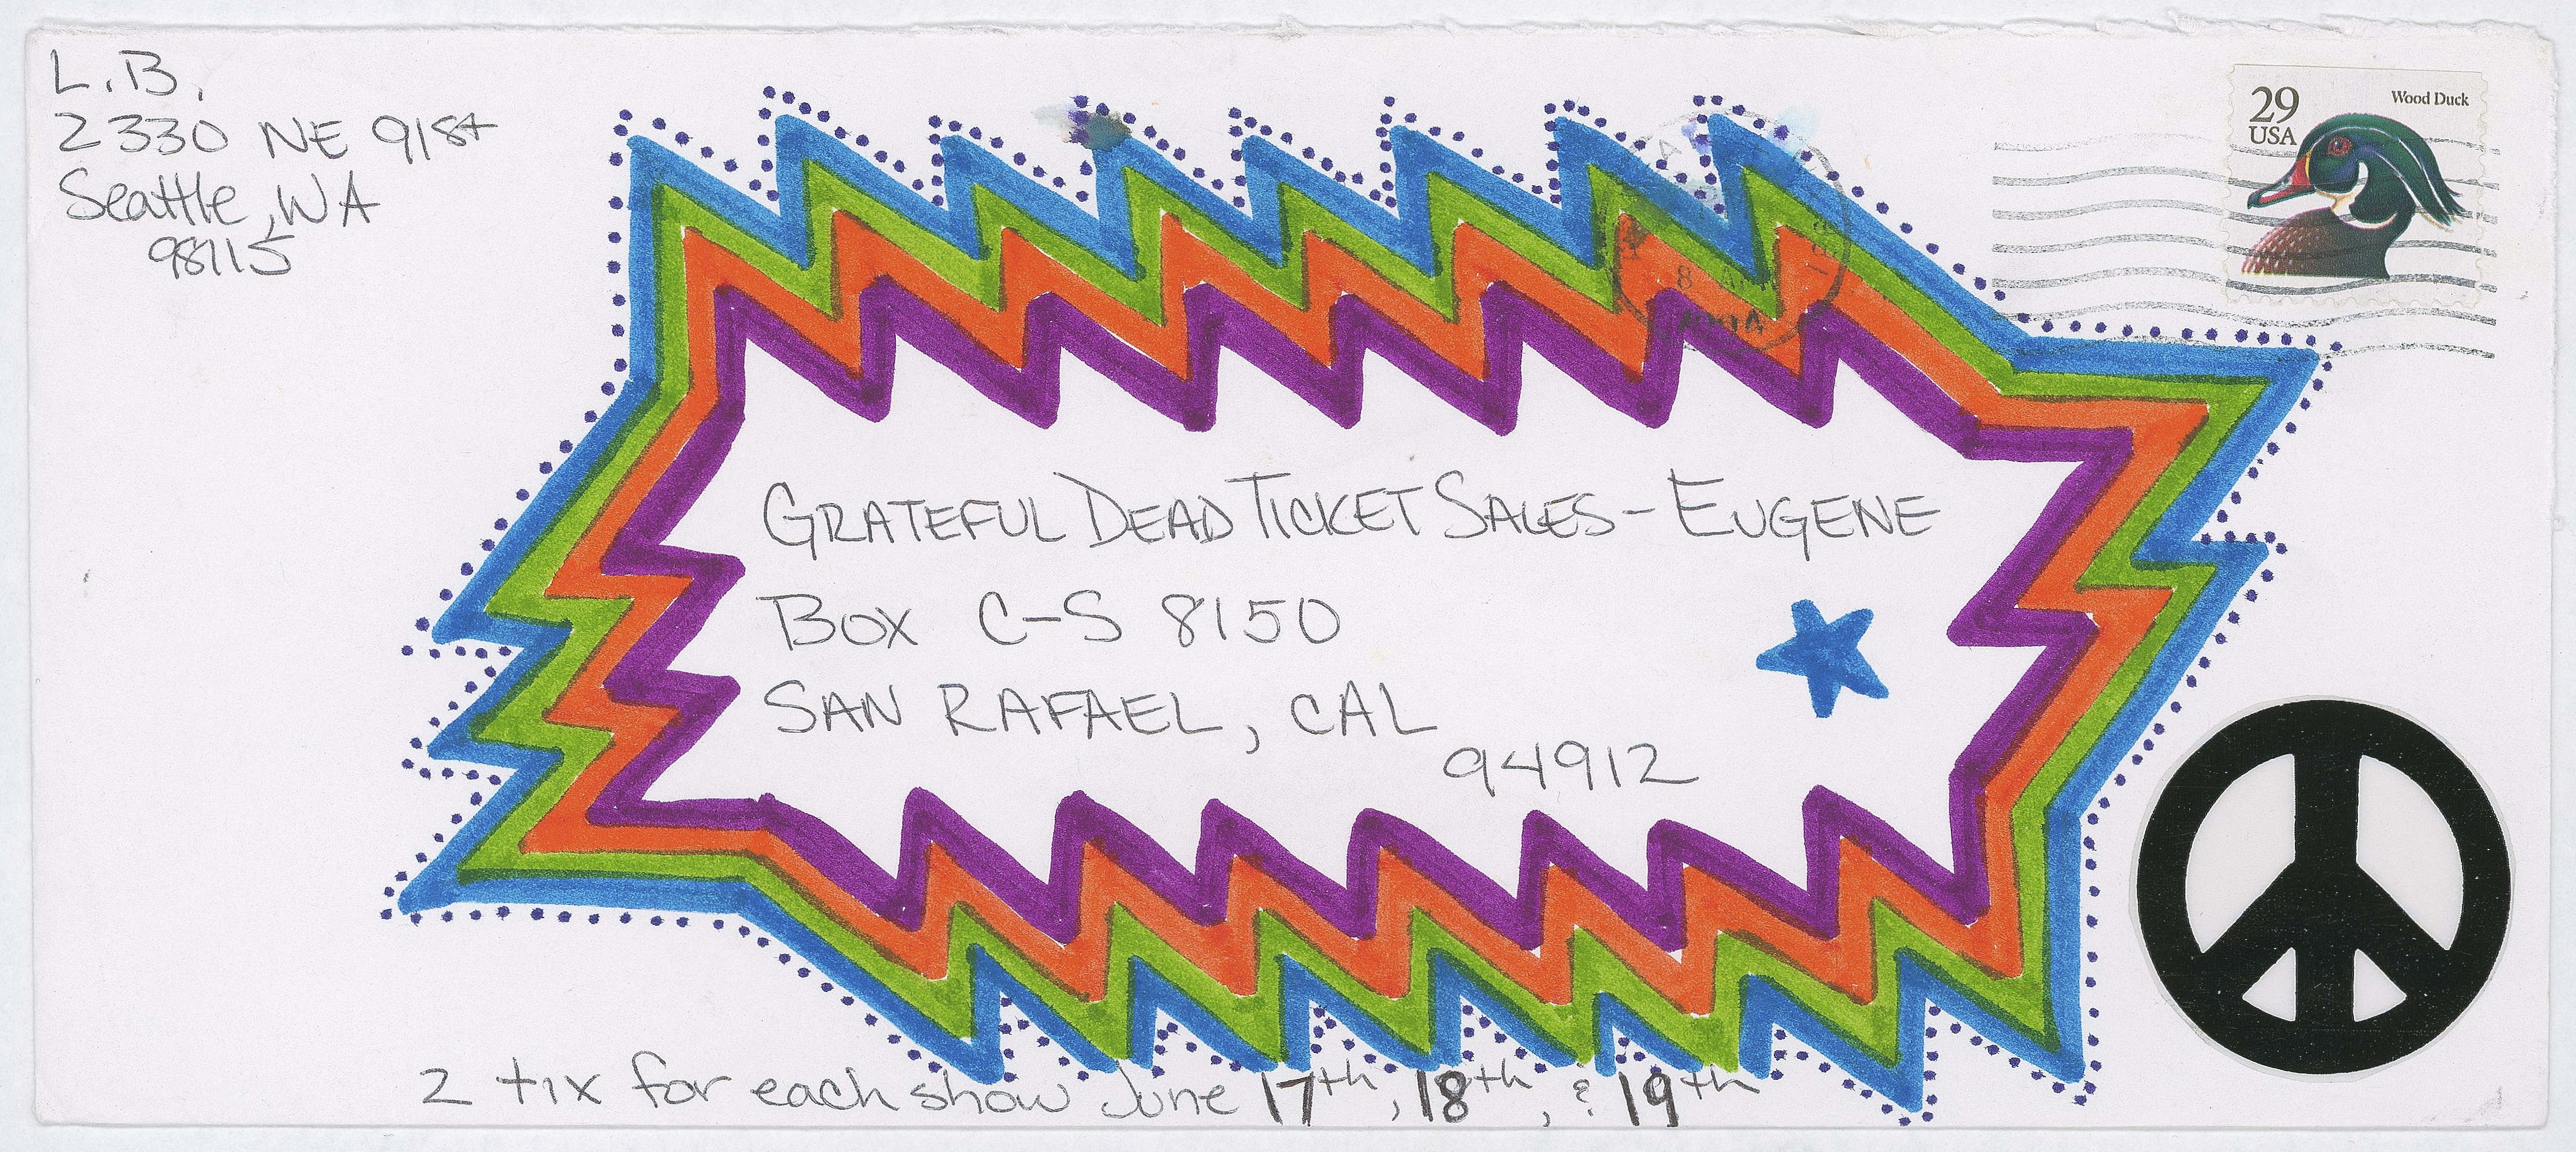 L.B.
2330 NE 91st
Seattle, WA
98115
29
USA
Wood Duck
GRATEFUL DEAD TICKET SALES - EUGENE
BOX C-S 8150
SAN RAFAEL, CAL
94912
2 tix for each show June 17th, 18th, & 19th